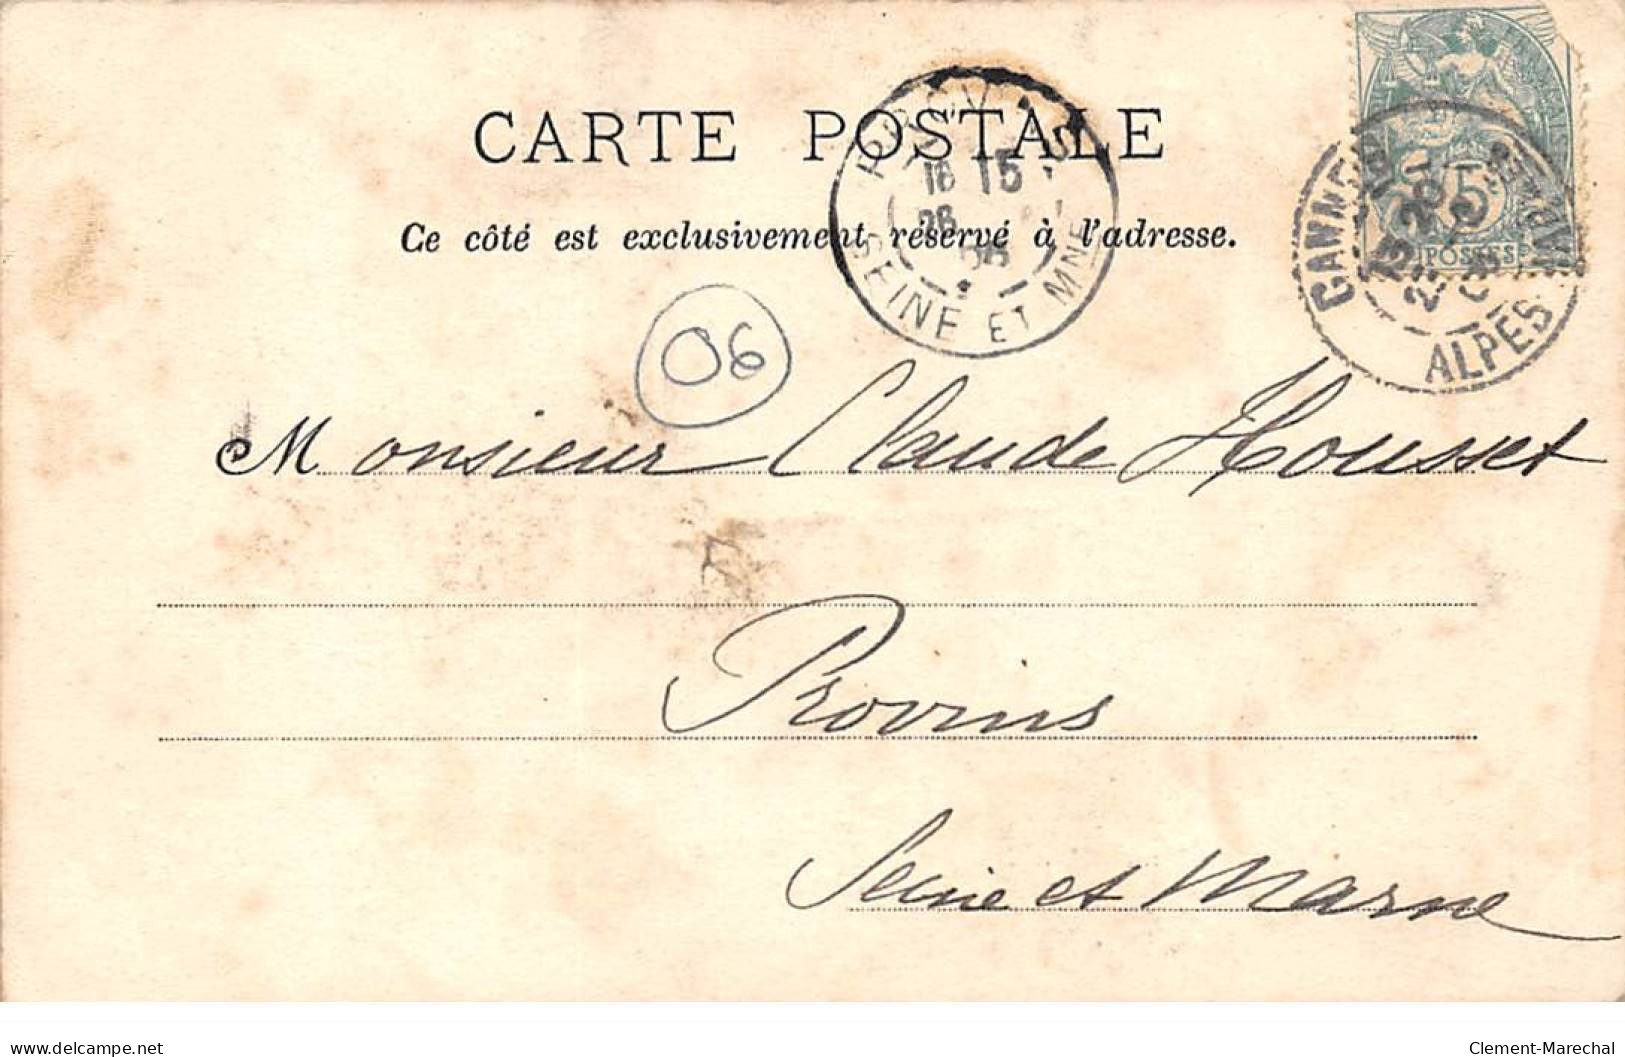 CARTE POSTALE
Ce côté est exclusivement réservé à l'adresse.
PROVINS
16 15
SEINE ET MNE
CANNES
13 20
ALPES MARMES
5
POSTES
06
Monsieur Claude Housset
Provins
Seine et Marne
www.delcampe.net
Clement-Marechal